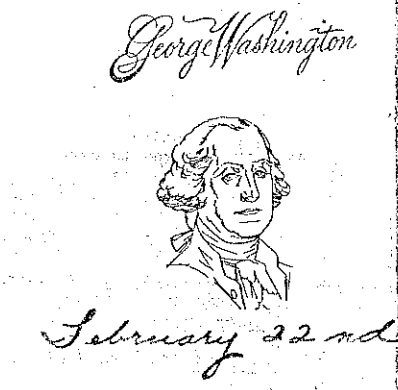 George Washington
February 22nd